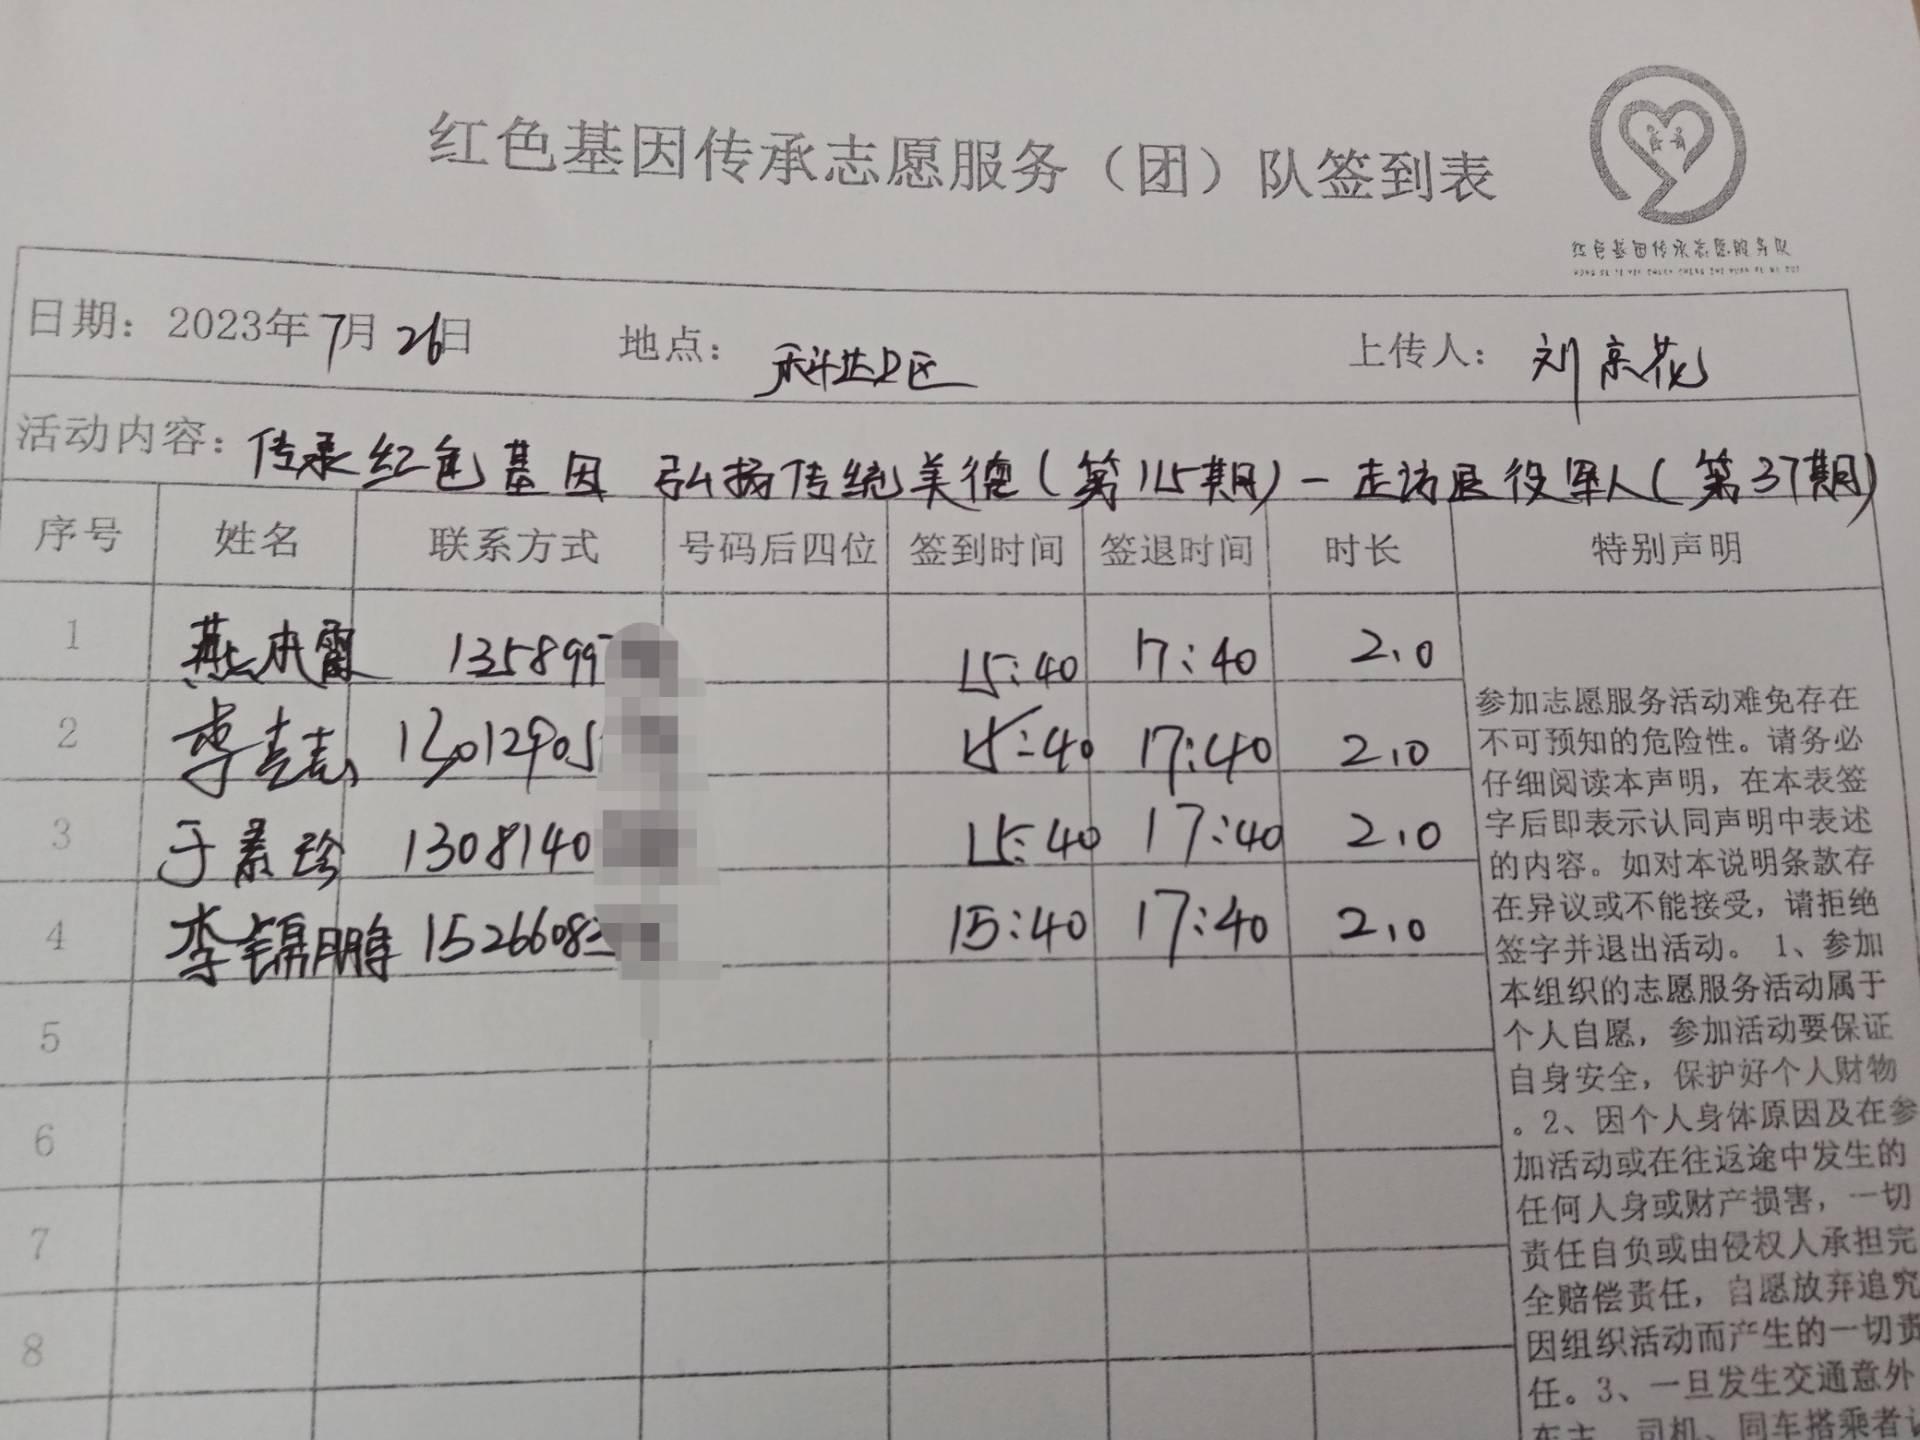 红色基因传承志愿服务（团）队签到表
红色基因传承志愿服务队
日期：2023年7月26日 地点：科达D区 上传人：刘京花
活动内容：传承红色基因 弘扬传统美德（第115期）－走访退役军人（第37期）
序号 姓名 联系方式 号码后四位 签到时间 签退时间 时长 特别声明
1 燕本霞 135899 15:40 17:40 2.0
2 李志 13012905 15:40 17:40 2.0
3 于素珍 1308140 15:40 17:40 2.0
4 李锦鹏 15266082 15:40 17:40 2.0
5
6
7
8
参加志愿服务活动难免存在
不可预知的危险性。请务必
仔细阅读本声明，在本表签
字后即表示认同声明中表述
的内容。如对本说明条款存
在异议或不能接受，请拒绝
签字并退出活动。 1、参加
本组织的志愿服务活动属于
个人自愿，参加活动要保证
自身安全，保护好个人财物
。2、因个人身体原因及在参
加活动或在往返途中发生的
任何人身或财产损害，一切
责任自负或由侵权人承担完
全赔偿责任，自愿放弃追究
因组织活动而产生的一切责
任。3、一旦发生交通意外
车主、司机、同车搭乘者